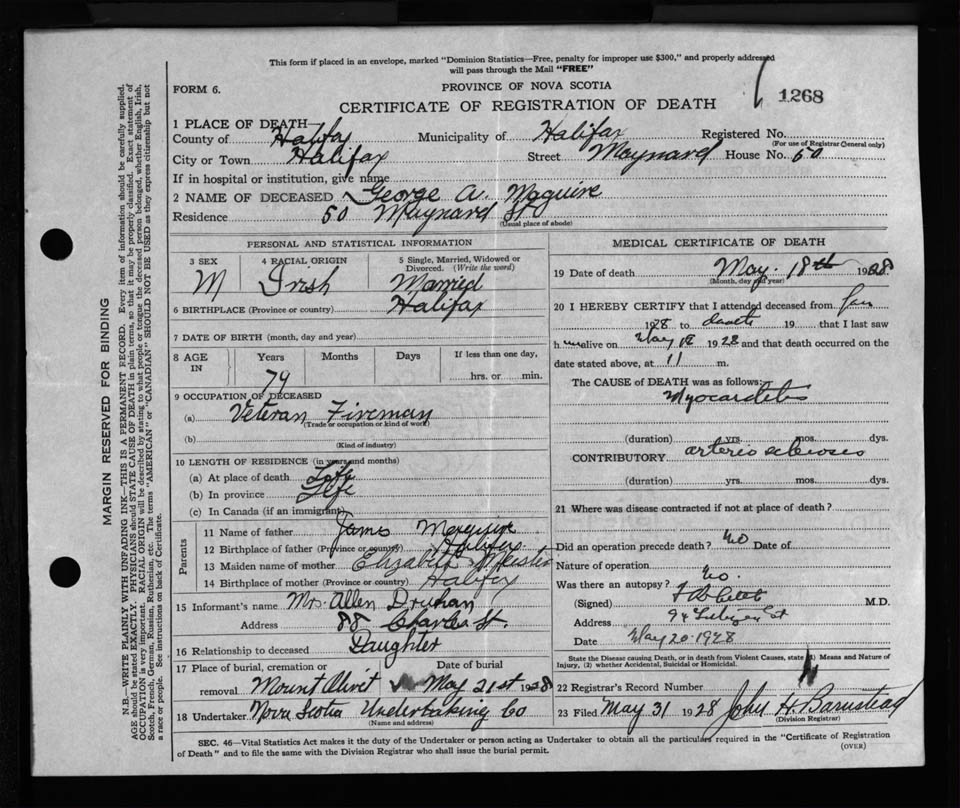 This form if placed in an envelope, marked "Dominion Statistics—Free, penalty for improper use $300," and properly addressed
will pass through the Mail "FREE"
FORM 6.
PROVINCE OF NOVA SCOTIA
1268
CERTIFICATE OF REGISTRATION OF DEATH
1 PLACE OF DEATH
County of Halifax Municipality of Halifax Registered No.
(For use of Registrar General only)
City or Town Halifax Street Maynard House No. 50
If in hospital or institution, give name
2 NAME OF DECEASED George A. Maguire
Residence 50 Maynard St
(Usual place of abode)
PERSONAL AND STATISTICAL INFORMATION
3 SEX M
4 RACIAL ORIGIN Irish
5 Single, Married, Widowed or Divorced. (Write the word) Married
6 BIRTHPLACE (Province or country) Halifax
7 DATE OF BIRTH (month, day and year)
8 AGE IN Years Months Days If less than one day,
74 hrs. or min.
9 OCCUPATION OF DECEASED
(a) Veteran Fireman
(Trade or occupation or kind of work)
(b)
(Kind of industry)
10 LENGTH OF RESIDENCE (in years and months)
(a) At place of death Life
(b) In province Life
(c) In Canada (if an immigrant)
Parents
11 Name of father James
12 Birthplace of father (Province or country) Halifax
13 Maiden name of mother Elizabeth
14 Birthplace of mother (Province or country) Halifax
15 Informant's name Mrs. Allen Druhan
Address 88 Charles St.
16 Relationship to deceased Daughter
17 Place of burial, cremation or removal Mount Olivet Date of burial May 21st 1928
18 Undertaker Nova Scotia Undertaking Co
(Name and address)
MEDICAL CERTIFICATE OF DEATH
19 Date of death May. 18th 1928
(Month, day and year)
20 I HEREBY CERTIFY that I attended deceased from Jan
1928 to death 19 that I last saw
h im alive on May 18 1928 and that death occurred on the
date stated above, at 11 m.
The CAUSE of DEATH was as follows:
Myocarditis
(duration) yrs. mos. dys.
CONTRIBUTORY arterio sclerosis
(duration) yrs. mos. dys.
21 Where was disease contracted if not at place of death?
Did an operation precede death? No Date of
Nature of operation
Was there an autopsy? No.
(Signed) M.D.
Address 94
Date May 20 1928
State the Disease causing Death, or in death from Violent Causes, state (1) Means and Nature of
Injury, (2) whether Accidental, Suicidal or Homicidal.
22 Registrar's Record Number
23 Filed May 31 1928 John H. Barnstead
(Division Registrar)
SEC. 46—Vital Statistics Act makes it the duty of the Undertaker or person acting as Undertaker to obtain all the particulars required in the "Certificate of Registration
of Death" and to file the same with the Division Registrar who shall issue the burial permit.
(OVER)
MARGIN RESERVED FOR BINDING
N.B.—WRITE PLAINLY WITH UNFADING INK—THIS IS A PERMANENT RECORD. Every item of information should be carefully supplied.
AGE should be stated EXACTLY. PHYSICIANS should STATE CAUSE OF DEATH in plain terms, so that it may be properly classified. Exact statement of
OCCUPATION is very important. RACIAL ORIGIN will be described by stating to what people or tongue the deceased person belonged, whether English, Irish,
Scotch, French, German, Russian, Ruthenian, etc. The terms "AMERICAN" or "CANADIAN" SHOULD NOT BE USED as they express citizenship but not
a race or people. See instructions on back of Certificate.